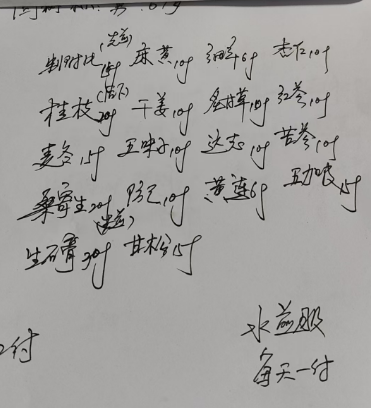 (先煎)
制附片15g 麻黄10g 细辛6g 杏仁10g
(后下)
桂枝20g 干姜10g 炙甘草10g 红参10g
麦冬15g 五味子10g 远志10g 苦参10g
桑寄生20g 防己10g 黄连6g 五加皮15g
(先煎)
生石膏30g 甘松15g
水煎服
付
每天一付